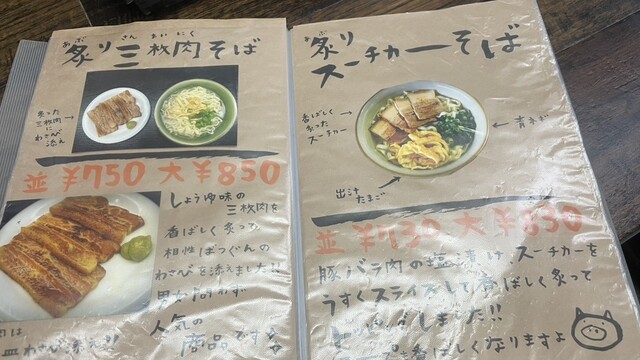 あぶ さんまいにく
炙り三枚肉そば
炙った
三枚肉に
わさび
添え
並 ¥750 大 ¥850
しょうゆ味の
三枚肉を
香ばしく炙って
相性ばつぐんの
わさびを添えました!!
男女問わず
人気の
商品です
皿わさび添え!!
あぶ
炙り
スーチカーそば
香ばしく
炙った
スーチカー
青ネギ
出汁
たまご
並 ¥730 大 ¥830
豚バラ肉の塩漬け、スーチカーを
うすくスライスして香ばしく炙って
しました!!
香ばしくなりますよ